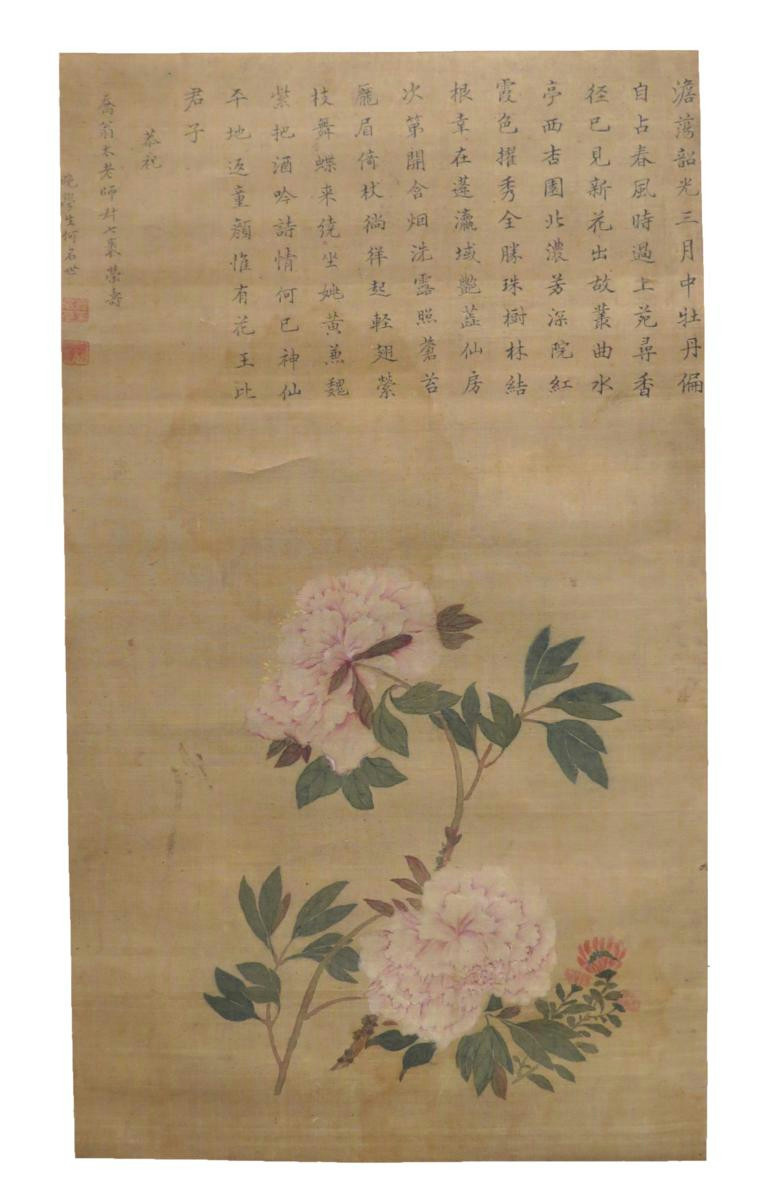 澹蕩韶光三月中牡丹偏
自占春風時過上苑尋香
径已見新花出故叢曲水
亭西杏園北濃芳深院紅
霞色擢秀全勝珠樹林結
根幸在蓬瀛域艶蕋仙房
次第開含烟洗露照蒼苔
龐眉倚杖徜徉起軽翅縈
枝舞蝶来繞坐姚黄兼魏
紫把酒吟詩情何已神仙
平地返童顔惟有花王比
君子
恭祝
喬翁太老師 七袠榮壽
晩學生何 世